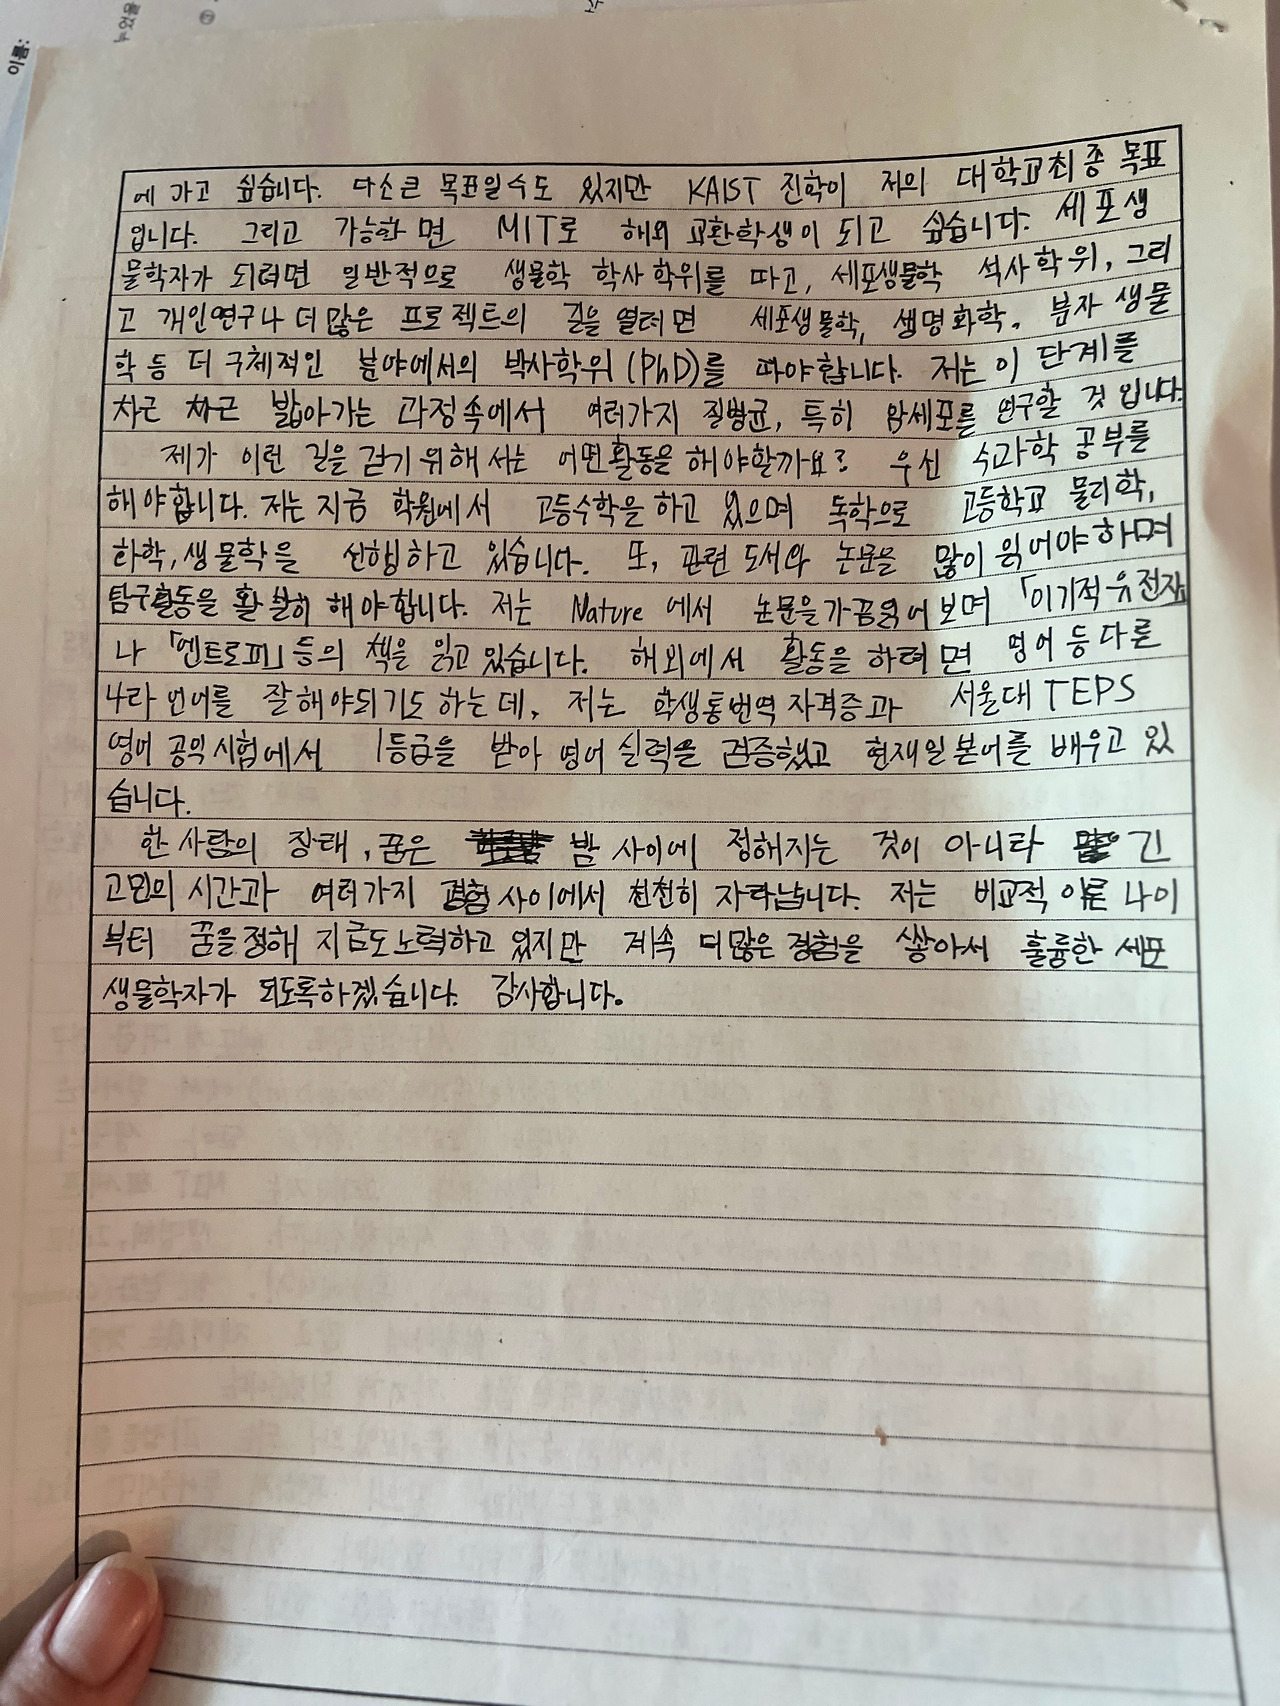 이름:
에 가고 싶습니다. 다소 큰 목표일수도 있지만 KAIST 진학이 저의 대학교 최종 목표
입니다. 그리고 가능하면 MIT로 해외 교환학생이 되고 싶습니다. 세포생
물학자가 되려면 일반적으로 생물학 학사 학위를 따고, 세포생물학 석사학위, 그리
고 개인연구나 더 많은 프로젝트의 길을 열려면 세포생물학, 생명화학, 분자 생물
학 등 더 구체적인 분야에서의 박사학위(PhD)를 따야합니다. 저는 이 단계를
차근 차근 밟아가는 과정속에서 여러가지 질병균, 특히 암세포를 연구할 것 입니다.
제가 이런 길을 걷기 위해서는 어떤활동을 해야할까요? 우선 수과학 공부를
해야합니다. 저는 지금 학원에서 고등수학을 하고 있으며 독학으로 고등학교 물리학,
화학, 생물학을 선행하고 있습니다. 또, 관련 도서와 논문을 많이 읽어야 하며
탐구활동을 활발히 해야합니다. 저는 Nature 에서 논문을 가끔 읽어 보며 「이기적 유전자」
나 「엔트로피」 등의 책을 읽고 있습니다. 해외에서 활동을 하려면 영어 등 다른
나라 언어를 잘해야되기도 하는데, 저는 학생통번역 자격증과 서울대 TEPS
영어 공익시험에서 1등급을 받아 영어 실력을 검증했고 현재 일본어를 배우고 있
습니다.
한 사람의 장래, 꿈은 밤 사이에 정해지는 것이 아니라 긴
고민의 시간과 여러가지 경험 사이에서 천천히 자라납니다. 저는 비교적 이른 나이
부터 꿈을 정해 지금도 노력하고 있지만 계속 더 많은 경험을 쌓아서 훌륭한 세포
생물학자가 되도록하겠습니다. 감사합니다.